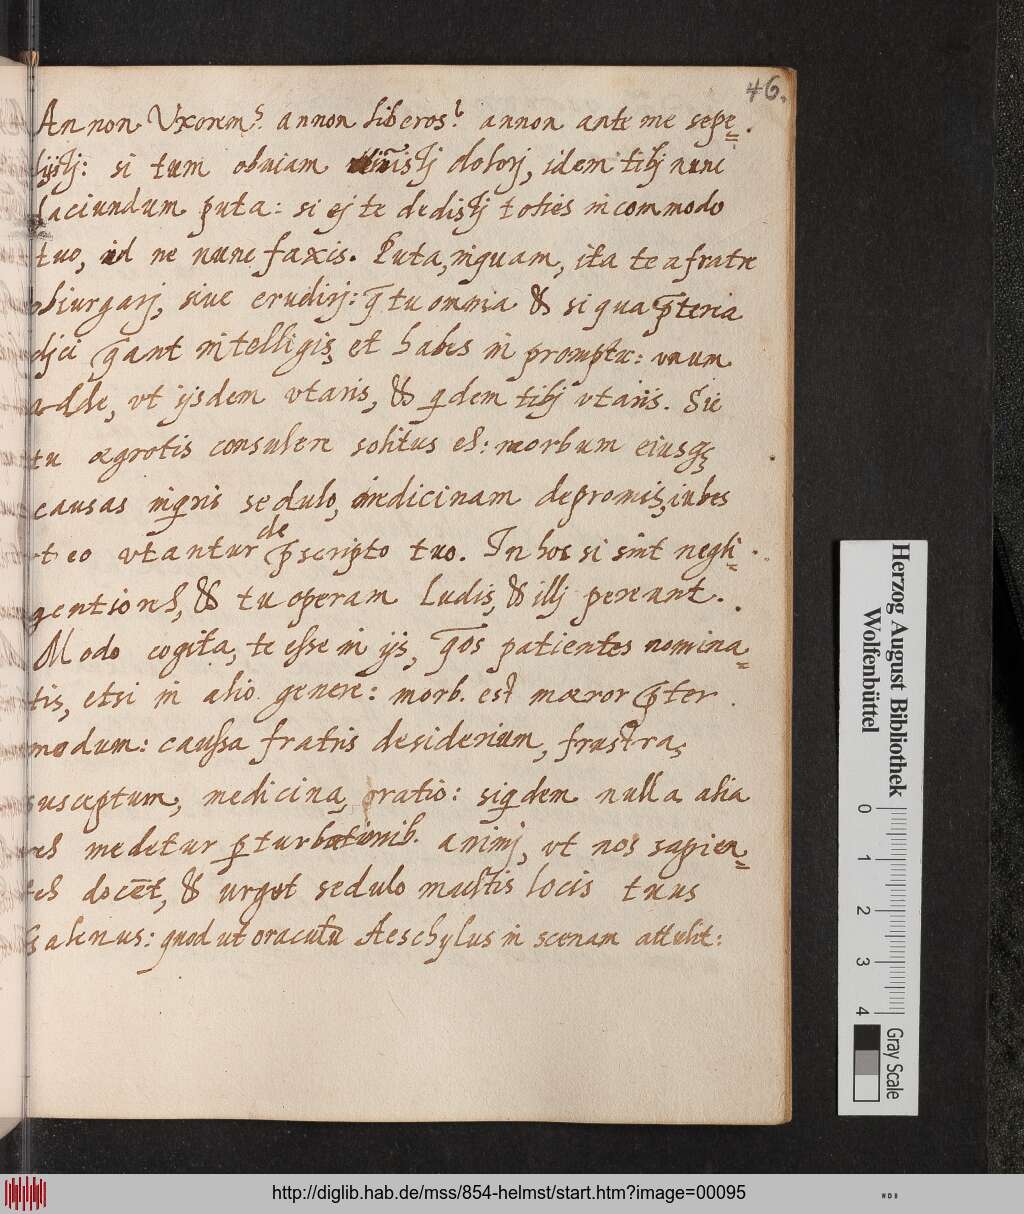 46.
Annon Vxorem? annon liberos? annon ante me sepe=
lijstj: si tum obuiam iuistj dolorj, idem tibj nunc
faciundum puta: si ej te dedistj toties incommodo
tuo, id ne nunc faxis. Puta, inquam, ita te a fratre
obiurgarj, siue erudirj: q̄ tu omnia & si qua p̄terea
dici q̄ant intelligis, et habes in promptu: vnum
adde, vt ijsdem vtaris, & qdem tibj vtaris. Sic
tu ægrotis consulere solitus es: morbum eiusq;
causas inqris sedulo, medicinam depromis, iubes
vt eo vtantur de p̄scripto tuo. In hoc si sint negli=
gentiores, & tu operam ludis, & illj pereant.
Modo cogita, te esse in ijs, q̄os patientes nomina=
tis, etsi in alio genere: morb. est mæror p̄ter
modum: caussa fratris desiderium, frustra,
susceptum, medicina, oratio: siqdem nulla alia
res medetur pturbationib. animj, vt nos sapien=
tes docēt, & urget sedulo multis locis tuus
Galenus: quod ut oraculū Aeschylus in scenam attulit:
Herzog August Bibliothek
Wolfenbüttel
0 1 2 3 4
Gray Scale
http://diglib.hab.de/mss/854-helmst/start.htm?image=00095
WDB